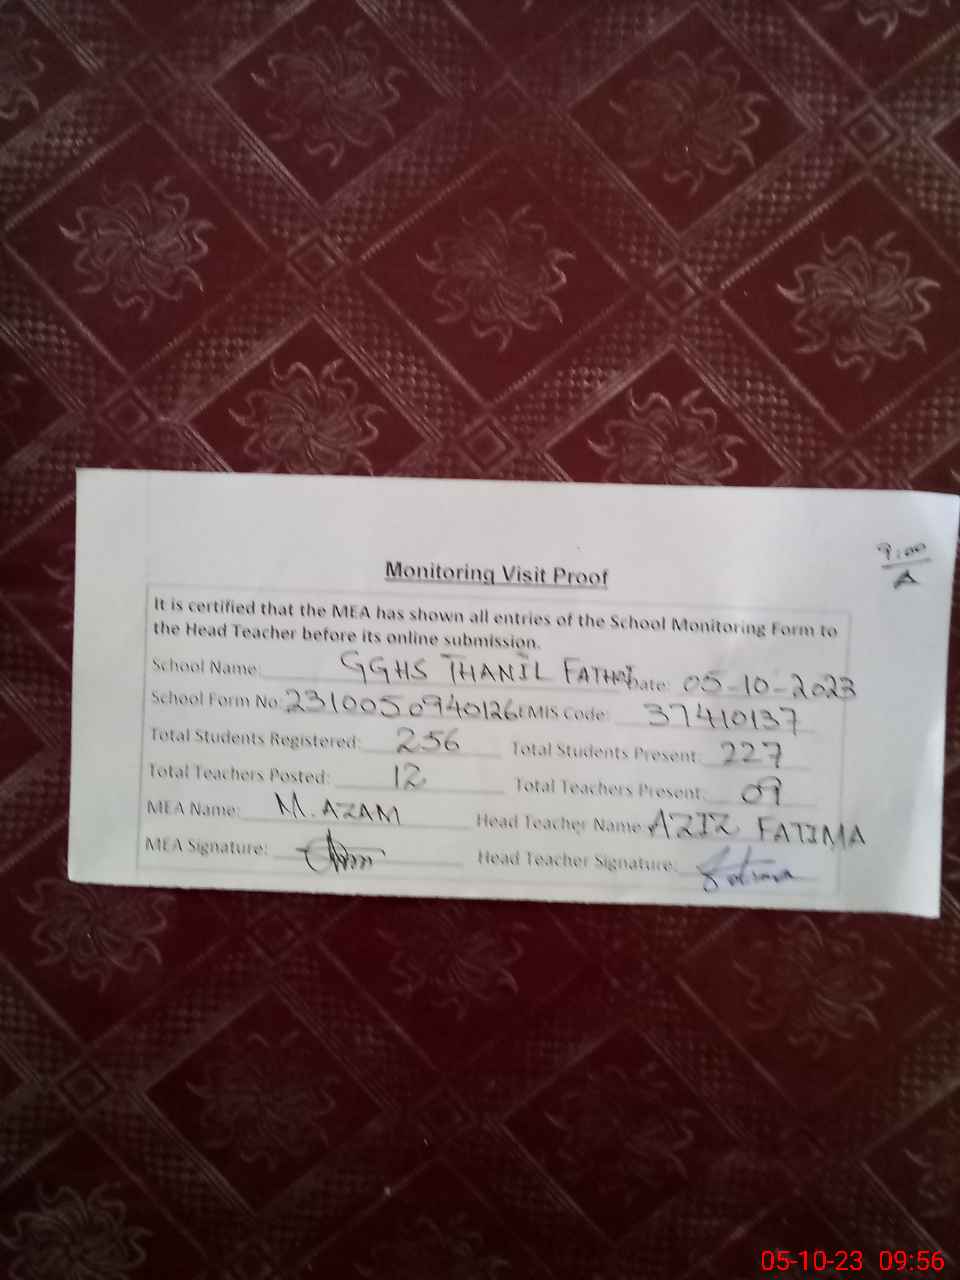 9:00
A
Monitoring Visit Proof
It is certified that the MEA has shown all entries of the School Monitoring Form to
the Head Teacher before its online submission.
School Name: GGHS THANIL FATHOI Date: 05-10-2023
School Form No: 2310050940126 EMIS Code: 37410137
Total Students Registered: 256 Total Students Present: 227
Total Teachers Posted: 12 Total Teachers Present: 09
MEA Name: M. AZAM Head Teacher Name: AZIZ FATIMA
MEA Signature: Head Teacher Signature: Fatima
05-10-23 09:56